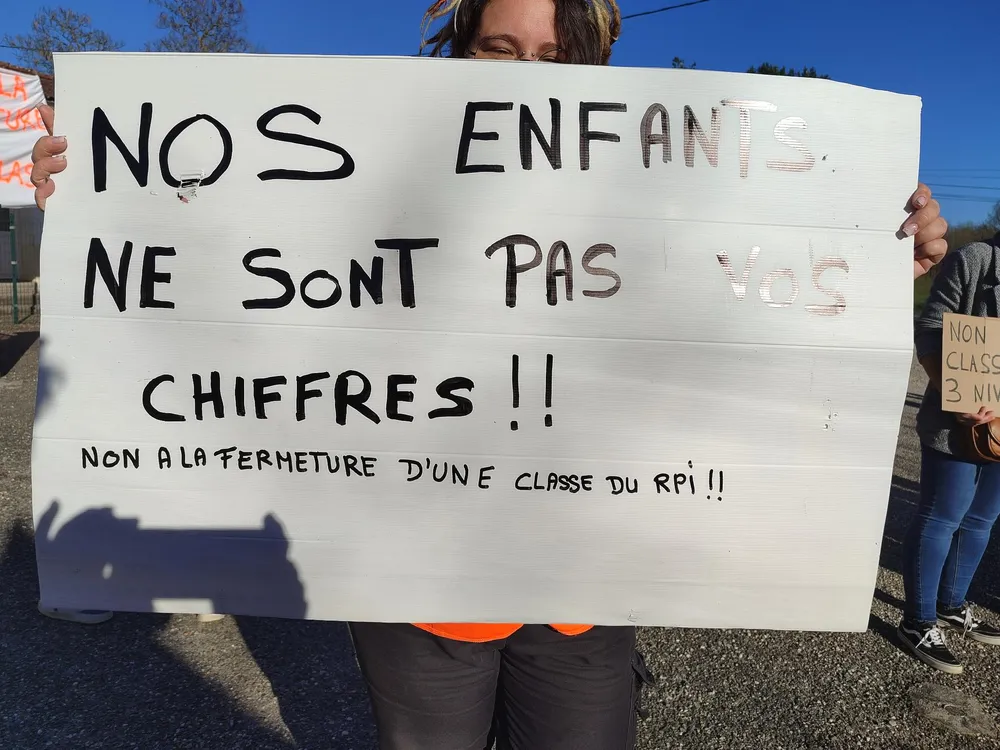 NOS ENFANTS
NE SONT PAS VOS
CHIFFRES !!
NON A LA FERMETURE D'UNE CLASSE DU RPI !!
LA
NON
CLASS
3 NIV